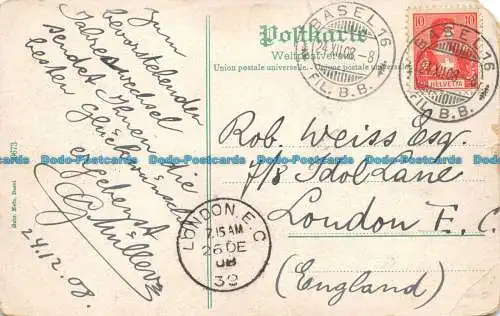 Postkarte
Weltpostverein
Union postale universelle. - Unione postale universale.
BASEL 16
24 XII 08 - 8
FIL. B.B.
10 10
HELVETIA
BASEL 16
24 XII 08 - 8
FIL. B.B.
Zum
bevorstehenden
Jahreswechsel
sendet Ihnen die
besten Glückwünsche
ergebenst
G. Müller
24.12.08.
Rob. Weiss Esq.
7/8 Idol Lane
London E. C.
(England)
LONDON. E.C.
7.15 AM
26 DE
08
39
Dodo-Postcards Dodo-Postcards Dodo-Postcards Dodo-Postcards Dodo-Postcards